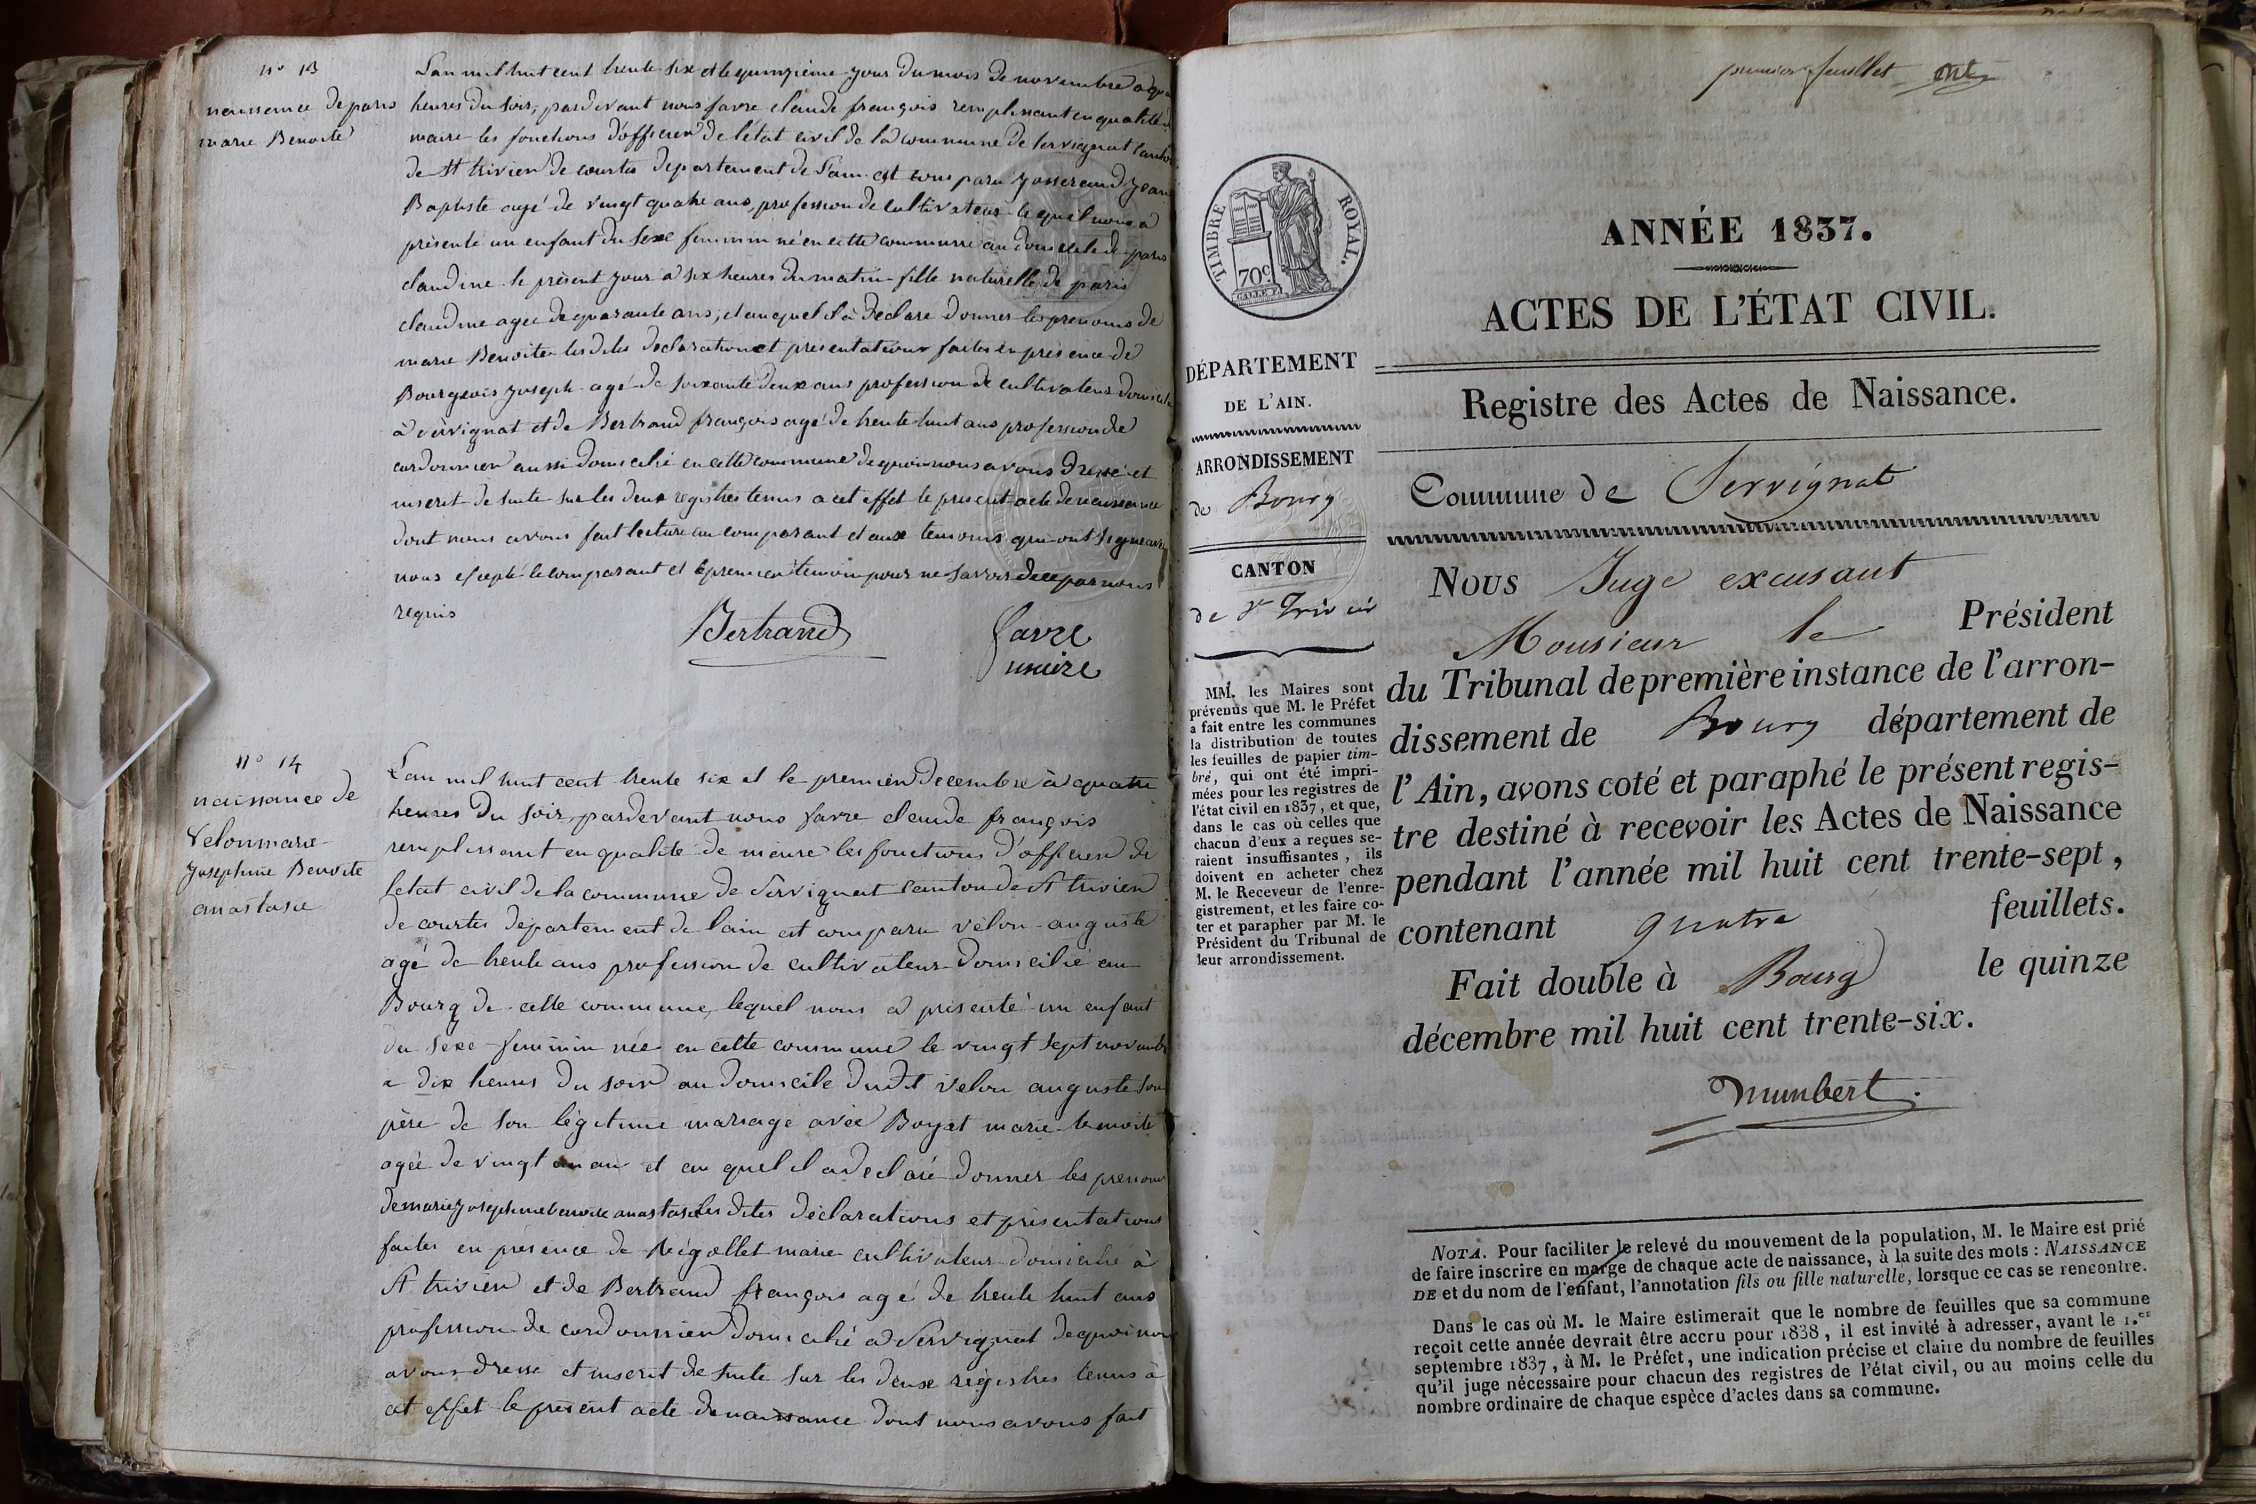 n° 13
naissance de paris
marie Benoite
L'an mil huit cent trente six et le quinzième jour du mois de novembre à
heures du soir, pardevant nous favre claude françois remplissant en qualité
maire les fonctions d'officier de l'état civil de la commune de servignat canton
de St trivier de courtes departement de l'ain est comparu josserand jean
Baptiste agé de vingt quatre ans, profession de cultivateur lequel nous a
présenté un enfant du sexe féminin né en cette commune au domicile de paris
claudine le présent jour à six heures du matin fille naturelle de paris
claudine agée de quarante ans, et auquel il a déclaré donner les prenoms de
marie Benoite les dites déclaration et présentation faites en présence de
Bourgeois joseph agé de soixante deux ans profession de cultivateur domicilié
à servignat et de Bertrand françois agé de trente huit ans profession de
cordonnier aussi domicilié en cette commune de quoi nous avons dressé et
inscrit de suite sur les deux registres tenus a cet effet le présent acte de naissance
dont nous avons fait lecture au comparant et aux temoins qui ont signé avec
nous excepté le comparant et le premier témoin pour ne savoir de ce par nous
requis
Bertrand
favre
maire
n° 14
naissance de
Velon marie
josephine Benoite
anastasie
L'an mil huit cent trente six et le premier decembre à quatre
heures du soir, pardevant nous favre claude françois
remplissant en qualité de maire les fonctions d'officier de
l'etat civil de la commune de Servignat canton de St trivier
de courtes departement de l'ain est comparu velon auguste
agé de trente ans profession de cultivateur domicilié au
Bourg de cette commune, lequel nous a présenté un enfant
du sexe feminin née en cette commune le vingt sept novembre
a dix heures du soir au domicile dudit velon auguste son
père de son légitime mariage avec Boyat marie benoite
agée de vingt un an et au quel il a déclaré donner les prenoms
de marie josephine benoite anastasie les dites déclarations et présentations
faites en présence de Régollet marie cultivateur domicilié à
St trivier et de Bertrand françois agé de trente huit ans
profession de cordonnier domicilié à Servignat de quoi nous
avons dressé et inscrit de suite sur les deux registres tenus à
cet effet le présent acte de naissance dont nous avons fait
premier feuillet
TIMBRE ROYAL.
70c
ANNÉE 1837.
ACTES DE L'ÉTAT CIVIL.
Registre des Actes de Naissance.
Commune de Servignat
DÉPARTEMENT
DE L'AIN.
ARRONDISSEMENT
de Bourg
CANTON
de St Trivier
MM. les Maires sont
prévenus que M. le Préfet
a fait entre les communes
la distribution de toutes
les feuilles de papier tim-
bré, qui ont été impri-
mées pour les registres de
l'état civil en 1837, et que,
dans le cas où celles que
chacun d'eux a reçues se-
raient insuffisantes, ils
doivent en acheter chez
M. le Receveur de l'enre-
gistrement, et les faire co-
ter et parapher par M. le
Président du Tribunal de
leur arrondissement.
Nous Juge excusant
Monsieur le Président
du Tribunal de première instance de l'arron-
dissement de Bourg département de
l'Ain, avons coté et paraphé le présent regis-
tre destiné à recevoir les Actes de Naissance
pendant l'année mil huit cent trente-sept,
contenant quatre feuillets.
Fait double à Bourg le quinze
décembre mil huit cent trente-six.
NOTA. Pour faciliter le relevé du mouvement de la population, M. le Maire est prié
de faire inscrire en marge de chaque acte de naissance, à la suite des mots : NAISSANCE
DE et du nom de l'enfant, l'annotation fils ou fille naturelle, lorsque ce cas se rencontre.
Dans le cas où M. le Maire estimerait que le nombre de feuilles que sa commune
reçoit cette année devrait être accru pour 1838, il est invité à adresser, avant le 1.er
septembre 1837, à M. le Préfet, une indication précise et claire du nombre de feuilles
qu'il juge nécessaire pour chacun des registres de l'état civil, ou au moins celle du
nombre ordinaire de chaque espèce d'actes dans sa commune.